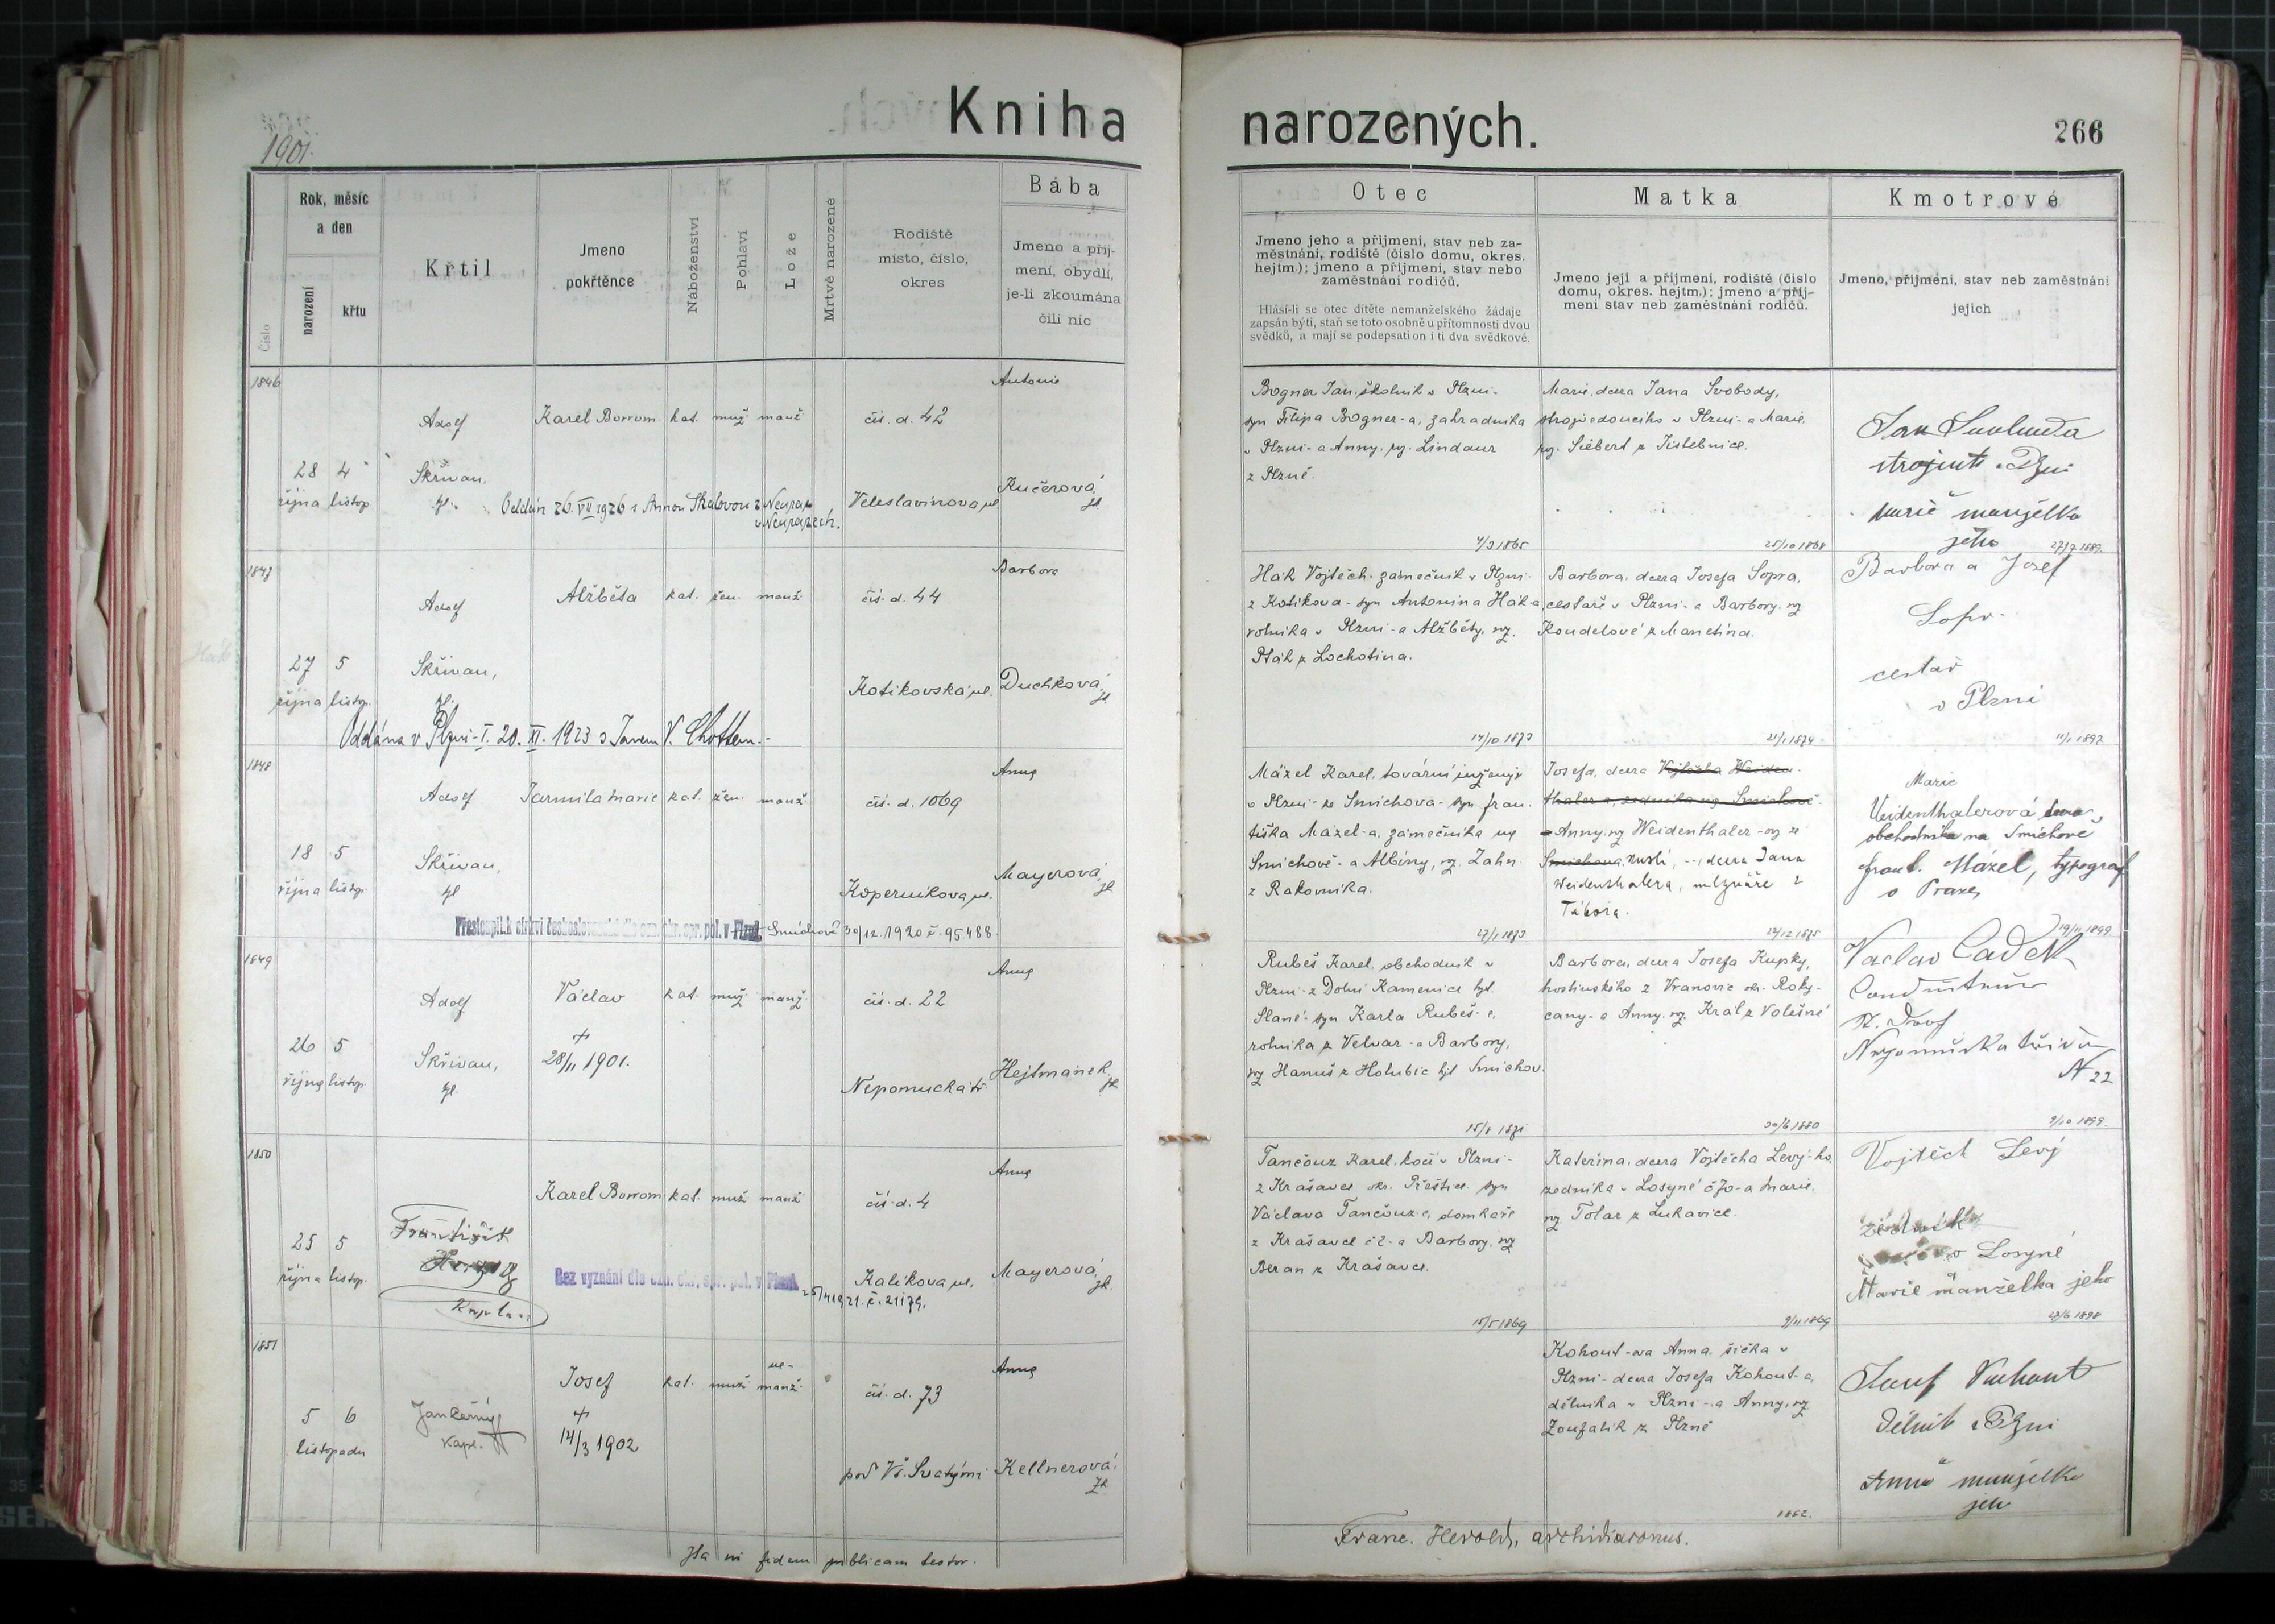 Kniha
narozených.
266
1901.
Číslo
Rok, měsíc
a den
narození
křtu
Křtil
Jmeno
pokřtěnce
Náboženství
Pohlaví
Lože
Mrtvě narozené
Rodiště
místo, číslo,
okres
Bába
Jmeno a příj-
mení, obydlí,
je-li zkoumána
čili nic
Otec
Jmeno jeho a příjmení, stav neb za-
městnání, rodiště (číslo domu, okres.
hejtm.); jmeno a příjmení, stav nebo
zaměstnání rodičů.
Hlásí-li se otec dítěte nemanželského žádaje
zapsán býti, staň se toto osobně u přítomnosti dvou
svědků, a mají se podepsati on i ti dva svědkové.
Matka
Jmeno její a příjmení, rodiště (číslo
domu, okres. hejtm.); jmeno a příj-
mení stav neb zaměstnání rodičů.
Kmotrové
Jmeno, příjmení, stav neb zaměstnání
jejich
1846
28 4
října listop.
Adolf
Skřivan,
Karel Borrom. kat. muž. manž.
čís. d. 42
Veleslavínova ul.
Antonie
Kučerová,
Oddán 26. VII 1926 s Annou Skalovou z Neuraz
v Neurazech.
Bogner Jan, školník v Plzni-
syn Filipa Bogner-a, zahradníka
v Plzni- a Anny, rz. Lindaur
z Plzně.
4/3 1865
Marie, dcera Jana Svobody,
strojvedoucího v Plzni- a Marie,
rz. Siebert z Jistebnice.
25/10 1868
Jan Svoboda
v Plzni
Marie manželka
jeho
1889.
1847
27 5
října listop.
Adolf
Skřivan,
Alžběta kat. žen. manž.
čís. d. 44
Kotikovská ul.
Barbora
Duchková,
Oddána v Plzni-I. 20. XI. 1923 s Janem V. Chottem.-
Hák Vojtěch, zámečník v Plzni-
z Kotikova- syn Antonína Hák-a,
rolníka v Plzni- a Alžběty, rz.
Pták z Lochotína.
14/10 1873
Barbora, dcera Josefa Sopra,
cestaře v Plzni- a Barbory, rz
Koudelové z Manetína.
21/1 1874
Barbora a Josef
Sopr
cestař
v Plzni
11/1 1897
1848
18 5
října listop.
Adolf
Skřivan,
Jarmila Marie kat. žen. manž.
čís. d. 1069
Koperníkova ul.
Anna
Mayerová,
Přestoupil. k církvi československé dle ozn. okr. spr. pol. v Plzni, Smíchově 30/12. 1920 č. 95488
Mázel Karel, tovární inženýr
v Plzni- ze Smíchova- syn Fran-
tiška Mázel-a, zámečníka na
Smíchově- a Albíny, rz. Zahn
z Rakovníka.
27/1 1873
Josefa, dcera Vojtěcha Weiden-
thaler-a, zedníka na Smíchově-
a Anny, rz Weidenthaler-ov ze
Smíchova, dcera Jana
Weidenthalera, mlynáře z
Tábora.
24/12 1875
Marie
Weidenthalerová dcera
obchodníka na Smíchově
Frant. Mázel, typograf
v Praze,
19/11 1899
1849
26 5
října listop.
Adolf
Skřivan,
Václav kat. muž. manž.
+
28/11 1901.
čís. d. 22
Nepomucká tř.
Anna
Hejtmánek,
Rubeš Karel, obchodník v
Plzni- z Dolní Kamenice hjt.
Slané- syn Karla Rubeš-e,
rolníka z Velvar- a Barbory,
rz Hanuš z Holubic hjt Smíchov.
15/8 1871
Barbora, dcera Josefa Kupky,
hostinského z Vranovic okr. Roky-
cany- a Anny, rz. Král z Volešné
30/6 1880
Vaclav Cadek
Nepomucka třida
N 22
9/10 1899.
1850
25 5
října listop.
František
Kaplan
Karel Borrom kat. muž. manž
čís. d. 4
Kalikova ul.
Anna
Mayerová,
Bez vyznání dle ozn. okr. spr. pol. v Plzni 25/4 1921. č. 21179.
Tančouz Karel, kočí v Plzni-
z Krašavce okr. Přeštice- syn
Václava Tančouz-e, domkaře
z Krašavce č 2- a Barbory, rz
Beran z Krašavce.
15/5 1869
Kateřina, dcera Vojtěcha Levý-ho,
zedníka v Losyné č 70- a Marie,
rz Tolar z Lukavice.
9/11 1869
Vojtěch Levý
zedník
v Losyné
Marie manželka jeho
1898
1851
5 6
listopadu
Jan Černý
kapl.
Josef kat. muž. ne-
manž.
+
14/3 1902
čís. d. 73
pod Vš. Svatými
Anna
Kellnerová,
Kohout-ova Anna, šička v
Plzni- dcera Josefa Kohout-a,
dělníka v Plzni- a Anny, rz
Zoufalík z Plzně
1882.
Josef Kohout
dělník v Plzni
Anna manželka
jeho
Ita in fidem publicam testor.
Franc. Herold, archidiaconus.